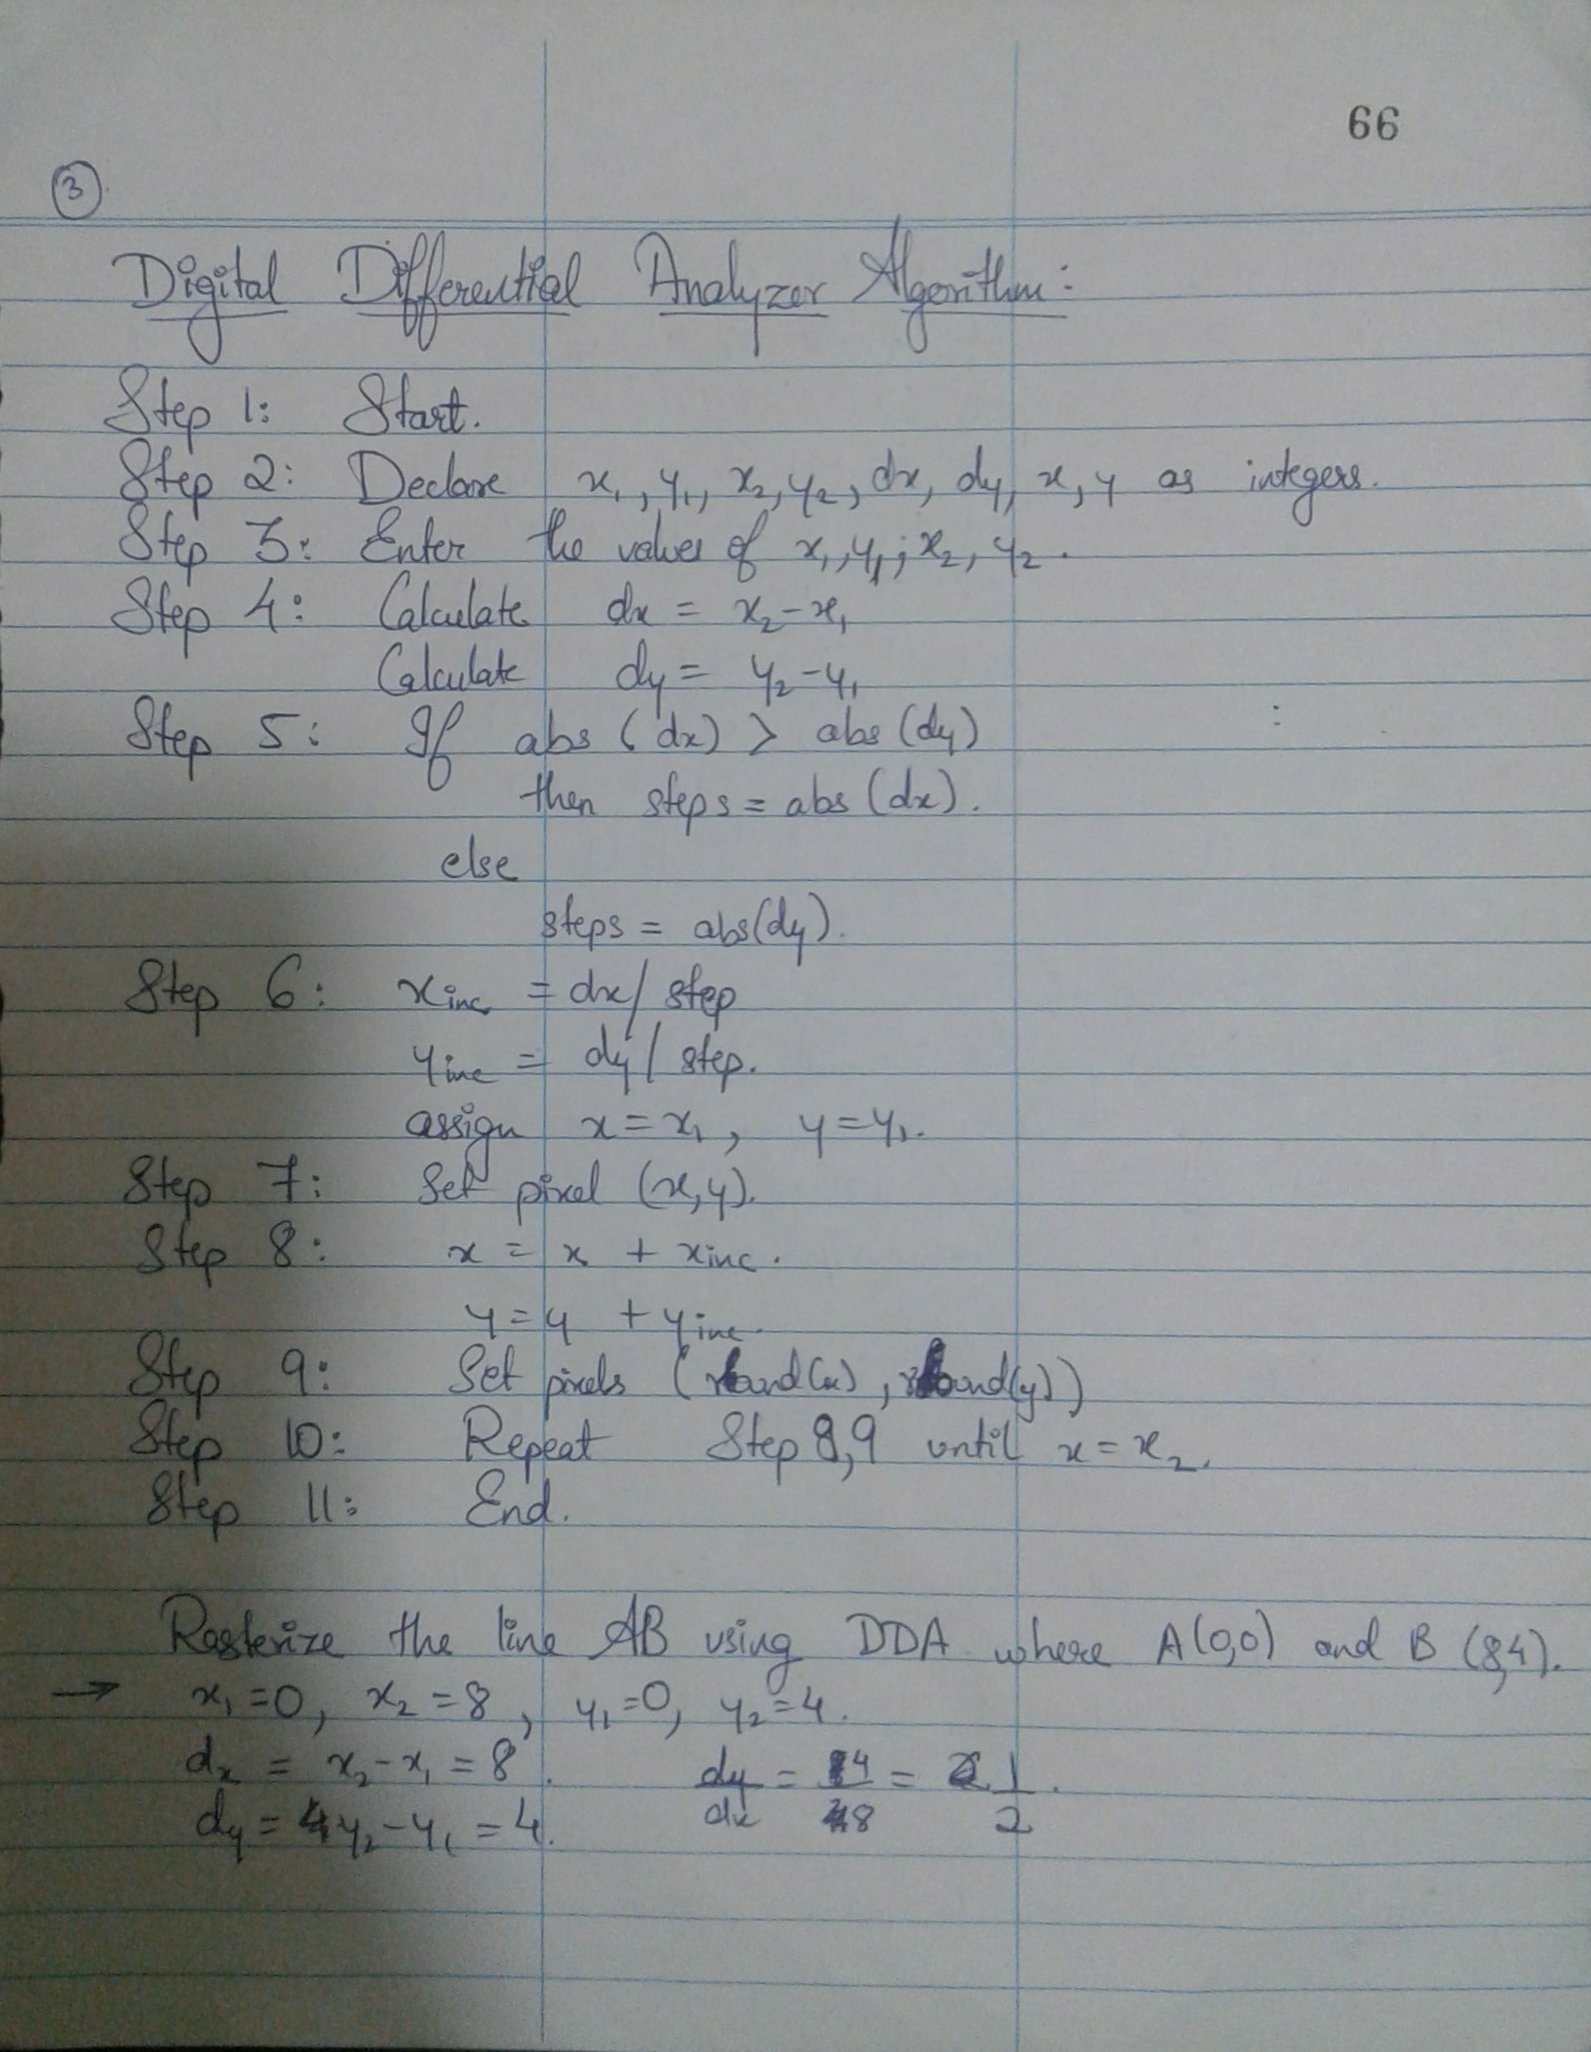 66
3
Digital Differential Analyzer Algorithm:
Step 1: Start.
Step 2: Declare x₁, y₁, x₂, y₂, dx, dy, x, y as integers.
Step 3: Enter the values of x₁, y₁; x₂, y₂.
Step 4: Calculate dx = x₂-x₁
Calculate dy = y₂-y₁
Step 5: If abs (dx) > abs (dy)
then steps = abs (dx).
else
steps = abs(dy).
Step 6: xinc = dx/ step
yinc = dy/ step.
assign x=x₁, y=y₁.
Step 7: Set pixel (x,y).
Step 8: x = x + xinc.
y = y + yinc.
Step 9: Set pixels (round(x), round(y))
Step 10: Repeat Step 8,9 until x = x₂.
Step 11: End.
Rasterize the line AB using DDA where A(0,0) and B (8,4).
→ x₁=0, x₂=8, y₁=0, y₂=4.
dx = x₂-x₁ = 8. dy/dx = 4/8 = 1/2.
dy = y₂-y₁ = 4.